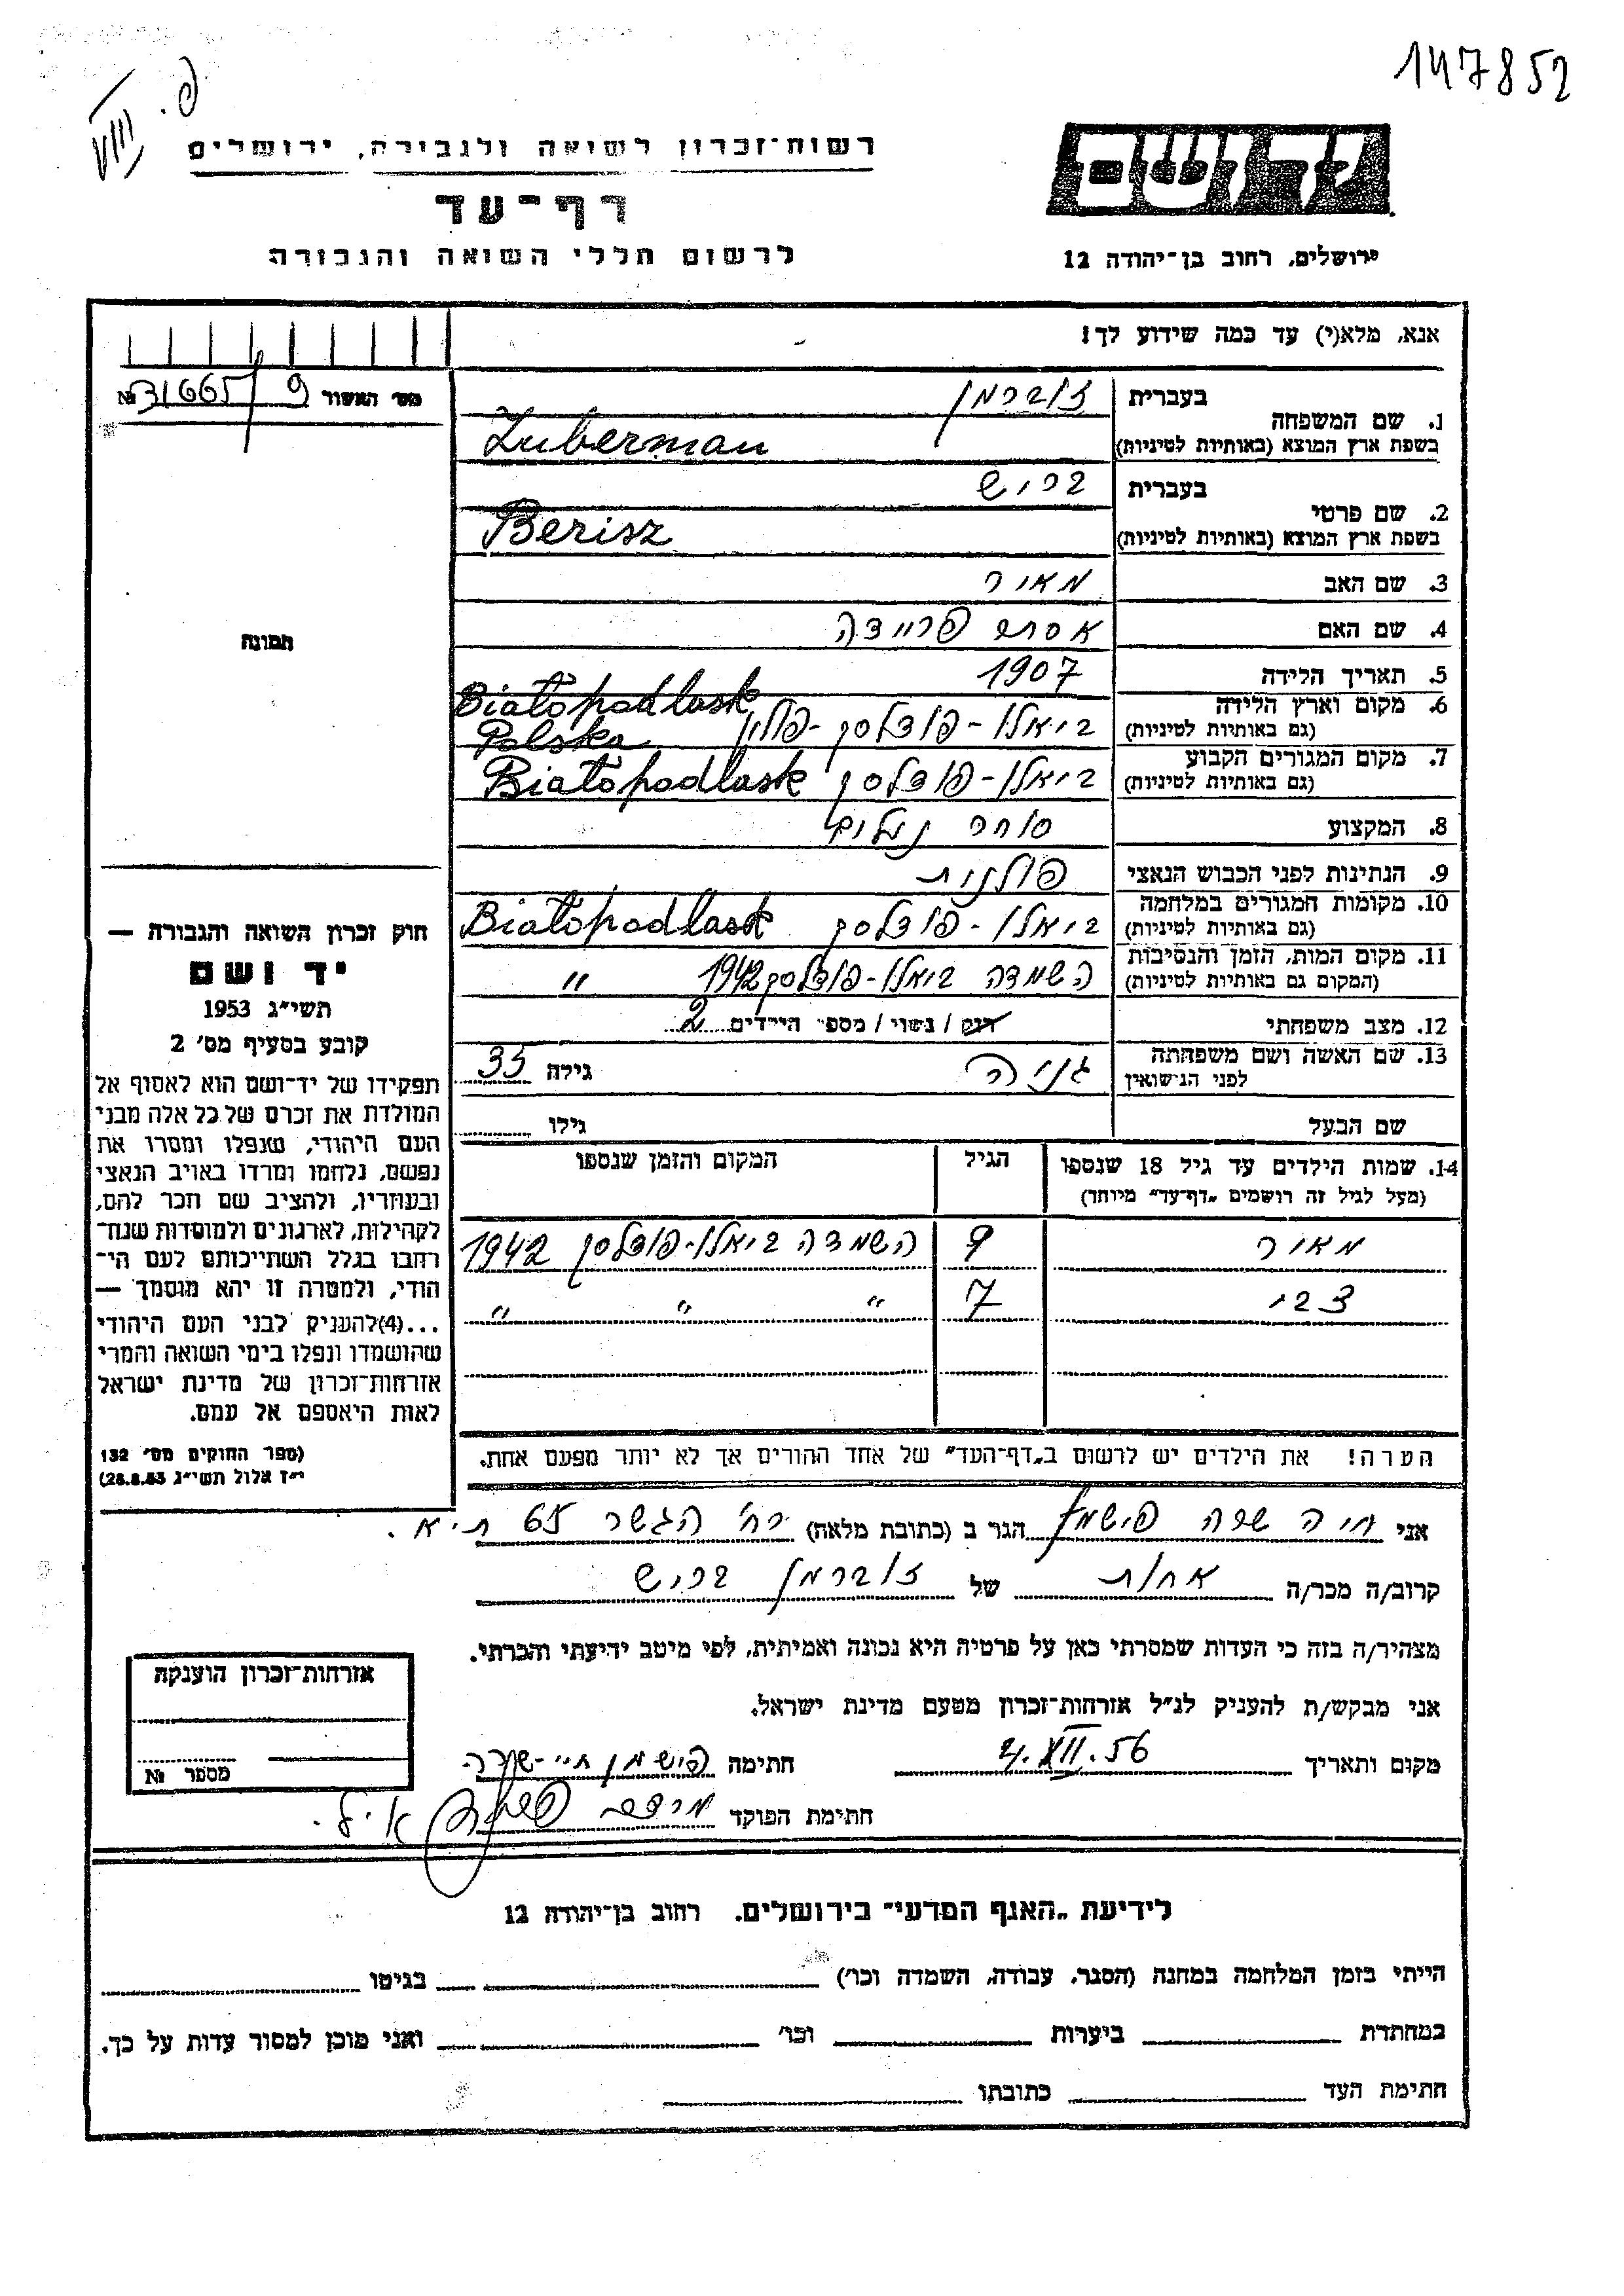 147852
פ. VIII
רשות־זכרון לשואה ולגבורה, ירושלים
דף־עד
לרשום חללי השואה והגבורה
יד ושם
ירושלים, רחוב בן־יהודה 12
אנא, מלא(י) עד כמה שידוע לך!
מס׳ האשור 9/31665 №
1. שם המשפחה
בעברית זוברמן
בשפת ארץ המוצא (באותיות לטיניות) Zuberman
2. שם פרטי
בעברית בריש
בשפת ארץ המוצא (באותיות לטיניות) Berisz
3. שם האב מאיר
4. שם האם אסתר פריידה
5. תאריך הלידה 1907
6. מקום וארץ הלידה (גם באותיות לטיניות) ביאלו-פודלסק -פולין Białopodlask Polska
7. מקום המגורים הקבוע (גם באותיות לטיניות) ביאלו-פודלסק Białopodlask
8. המקצוע סוחר נעלים
9. הנתינות לפני הכבוש הנאצי פולנית
10. מקומות המגורים במלחמה (גם באותיות לטיניות) ביאלו-פודלסק Białopodlask
11. מקום המות, הזמן והנסיבות (המקום גם באותיות לטיניות) השמדה ביאלו-פודלסק 1942 "
12. מצב משפחתי רווק / נשוי / מספר הילדים 2
13. שם האשה ושם משפחתה לפני הנישואין גניה גילה 35
שם הבעל גילו
14. שמות הילדים עד גיל 18 שנספו
(מעל לגיל זה רושמים „דף־עד" מיוחד)
הגיל
המקום והזמן שנספו
מאיר 9 השמדה ביאלו-פודלסק 1942
צבי 7 " " "
הערה! את הילדים יש לרשום ב„דף־העד" של אחד ההורים אך לא יותר מפעם אחת.
תמונה
חוק זכרון השואה והגבורה —
יד ושם
תשי״ג 1953
קובע בסעיף מס׳ 2
תפקידו של יד־ושם הוא לאסוף אל
המולדת את זכרם של כל אלה מבני
העם היהודי, שנפלו ומסרו את
נפשם, נלחמו ומרדו באויב הנאצי
ובעוזריו, ולהציב שם וזכר להם,
לקהילות, לארגונים ולמוסדות שנח־
רבו בגלל השתייכותם לעם הי־
הודי, ולמטרה זו יהא מוסמך —
...(4)להעניק לבני העם היהודי
שהושמדו ונפלו בימי השואה והמרי
אזרחות־זכרון של מדינת ישראל
לאות היאספם אל עמם.
(ספר החוקים מס׳ 132
י״ז אלול תשי״ג 28.8.53)
אני חיה שרה פישמן הגר ב (כתובת מלאה) רח׳ הגשר 65 ת״א.
קרוב/ה מכר/ה אחות של זוברמן בריש
מצהיר/ה בזה כי העדות שמסרתי כאן על פרטיה היא נכונה ואמיתית, לפי מיטב ידיעתי והכרתי.
אני מבקש/ת להעניק לנ״ל אזרחות־זכרון מטעם מדינת ישראל.
מקום ותאריך 4.XII.56 חתימה פישמן חיי-שרה
חתימת הפוקד
אזרחות־זכרון הוענקה
מספר №
לידיעת „האגף המדעי" בירושלים. רחוב בן־יהודה 12
הייתי בזמן המלחמה במחנה (הסגר, עבודה, השמדה וכו׳) בגיטו
במחתרת ביערות וכו׳ ואני מוכן למסור עדות על כך.
חתימת העד כתובתו